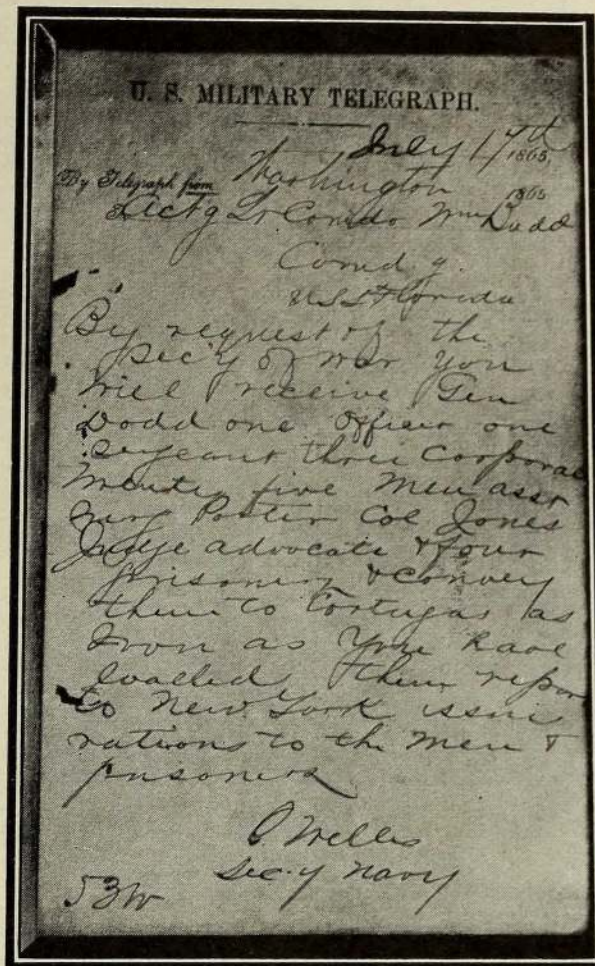 U. S. MILITARY TELEGRAPH.
July 17th 1865,
By Telegraph from Washington 1865
Actg Lt Comdr Wm Budd
Comdg
USS Florida
By request of the
Secy of war you
will receive Gen
Dodd one Officer one
Sergeant three Corporal
twenty five Men asst
surg Porter Col Jones
Judge advocate & four
prisoners & convey
them to Tortugas as
soon as you have
loaded them repor
to New York issue
rations to the men &
prisoners
G Welles
Secy Navy
53W